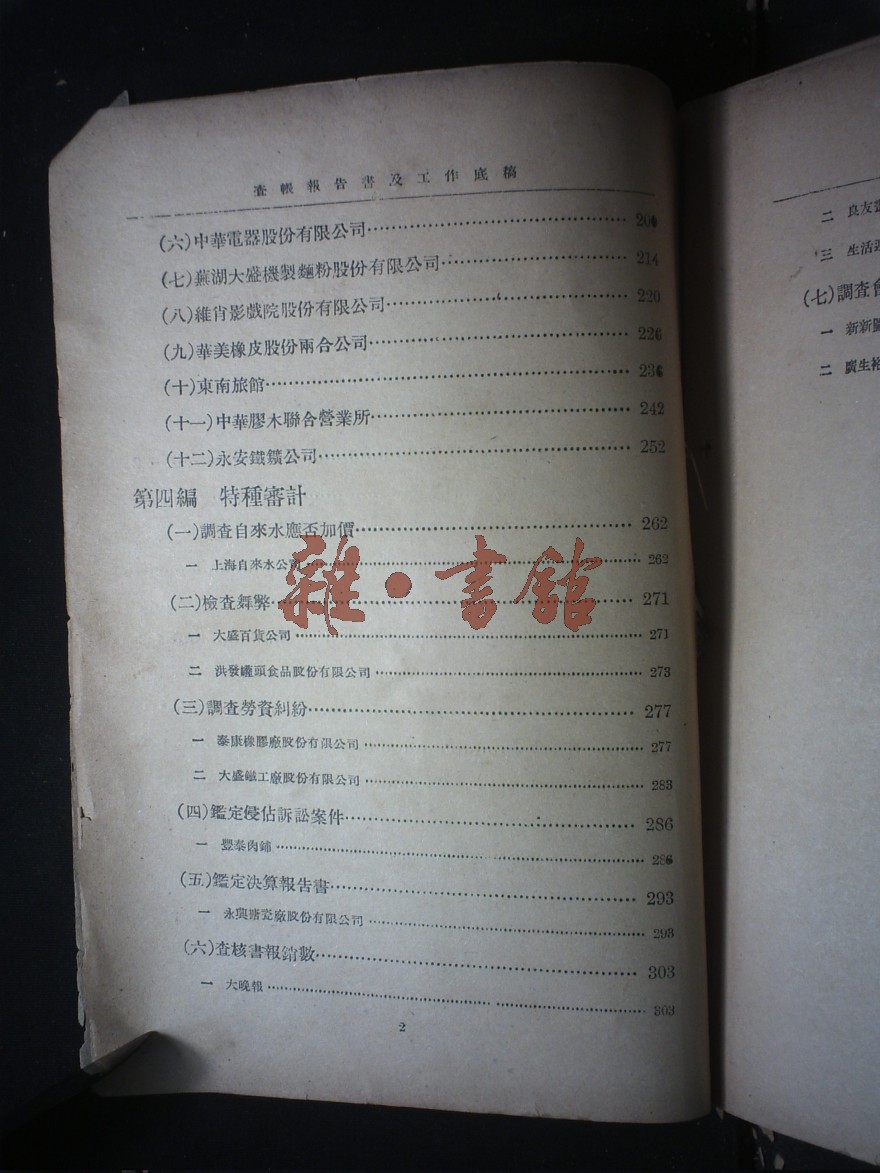 查帳報告書及工作底稿
(六)中華電器股份有限公司 206
(七)蕪湖大盛機製麵粉股份有限公司 214
(八)維肖影戲院股份有限公司 220
(九)華美橡皮股份兩合公司 226
(十)東南旅館 236
(十一)中華膠木聯合營業所 242
(十二)永安鐵鑛公司 252
第四編 特種審計
(一)調查自來水應否加價 262
一 上海自來水公司 262
(二)檢查舞弊 271
一 大盛百貨公司 271
二 洪發罐頭食品股份有限公司 273
(三)調查勞資糾紛 277
一 泰康橡膠廠股份有限公司 277
二 大盛鐵工廠股份有限公司 283
(四)鑑定侵佔訴訟案件 286
一 豐泰肉鋪 286
(五)鑑定決算報告書 293
一 永興搪瓷廠股份有限公司 293
(六)查核書報銷數 303
一 大晚報 303
2
雜·書館
二 良友
三 生活
(七)調查會
一 新新
二 廣生裕